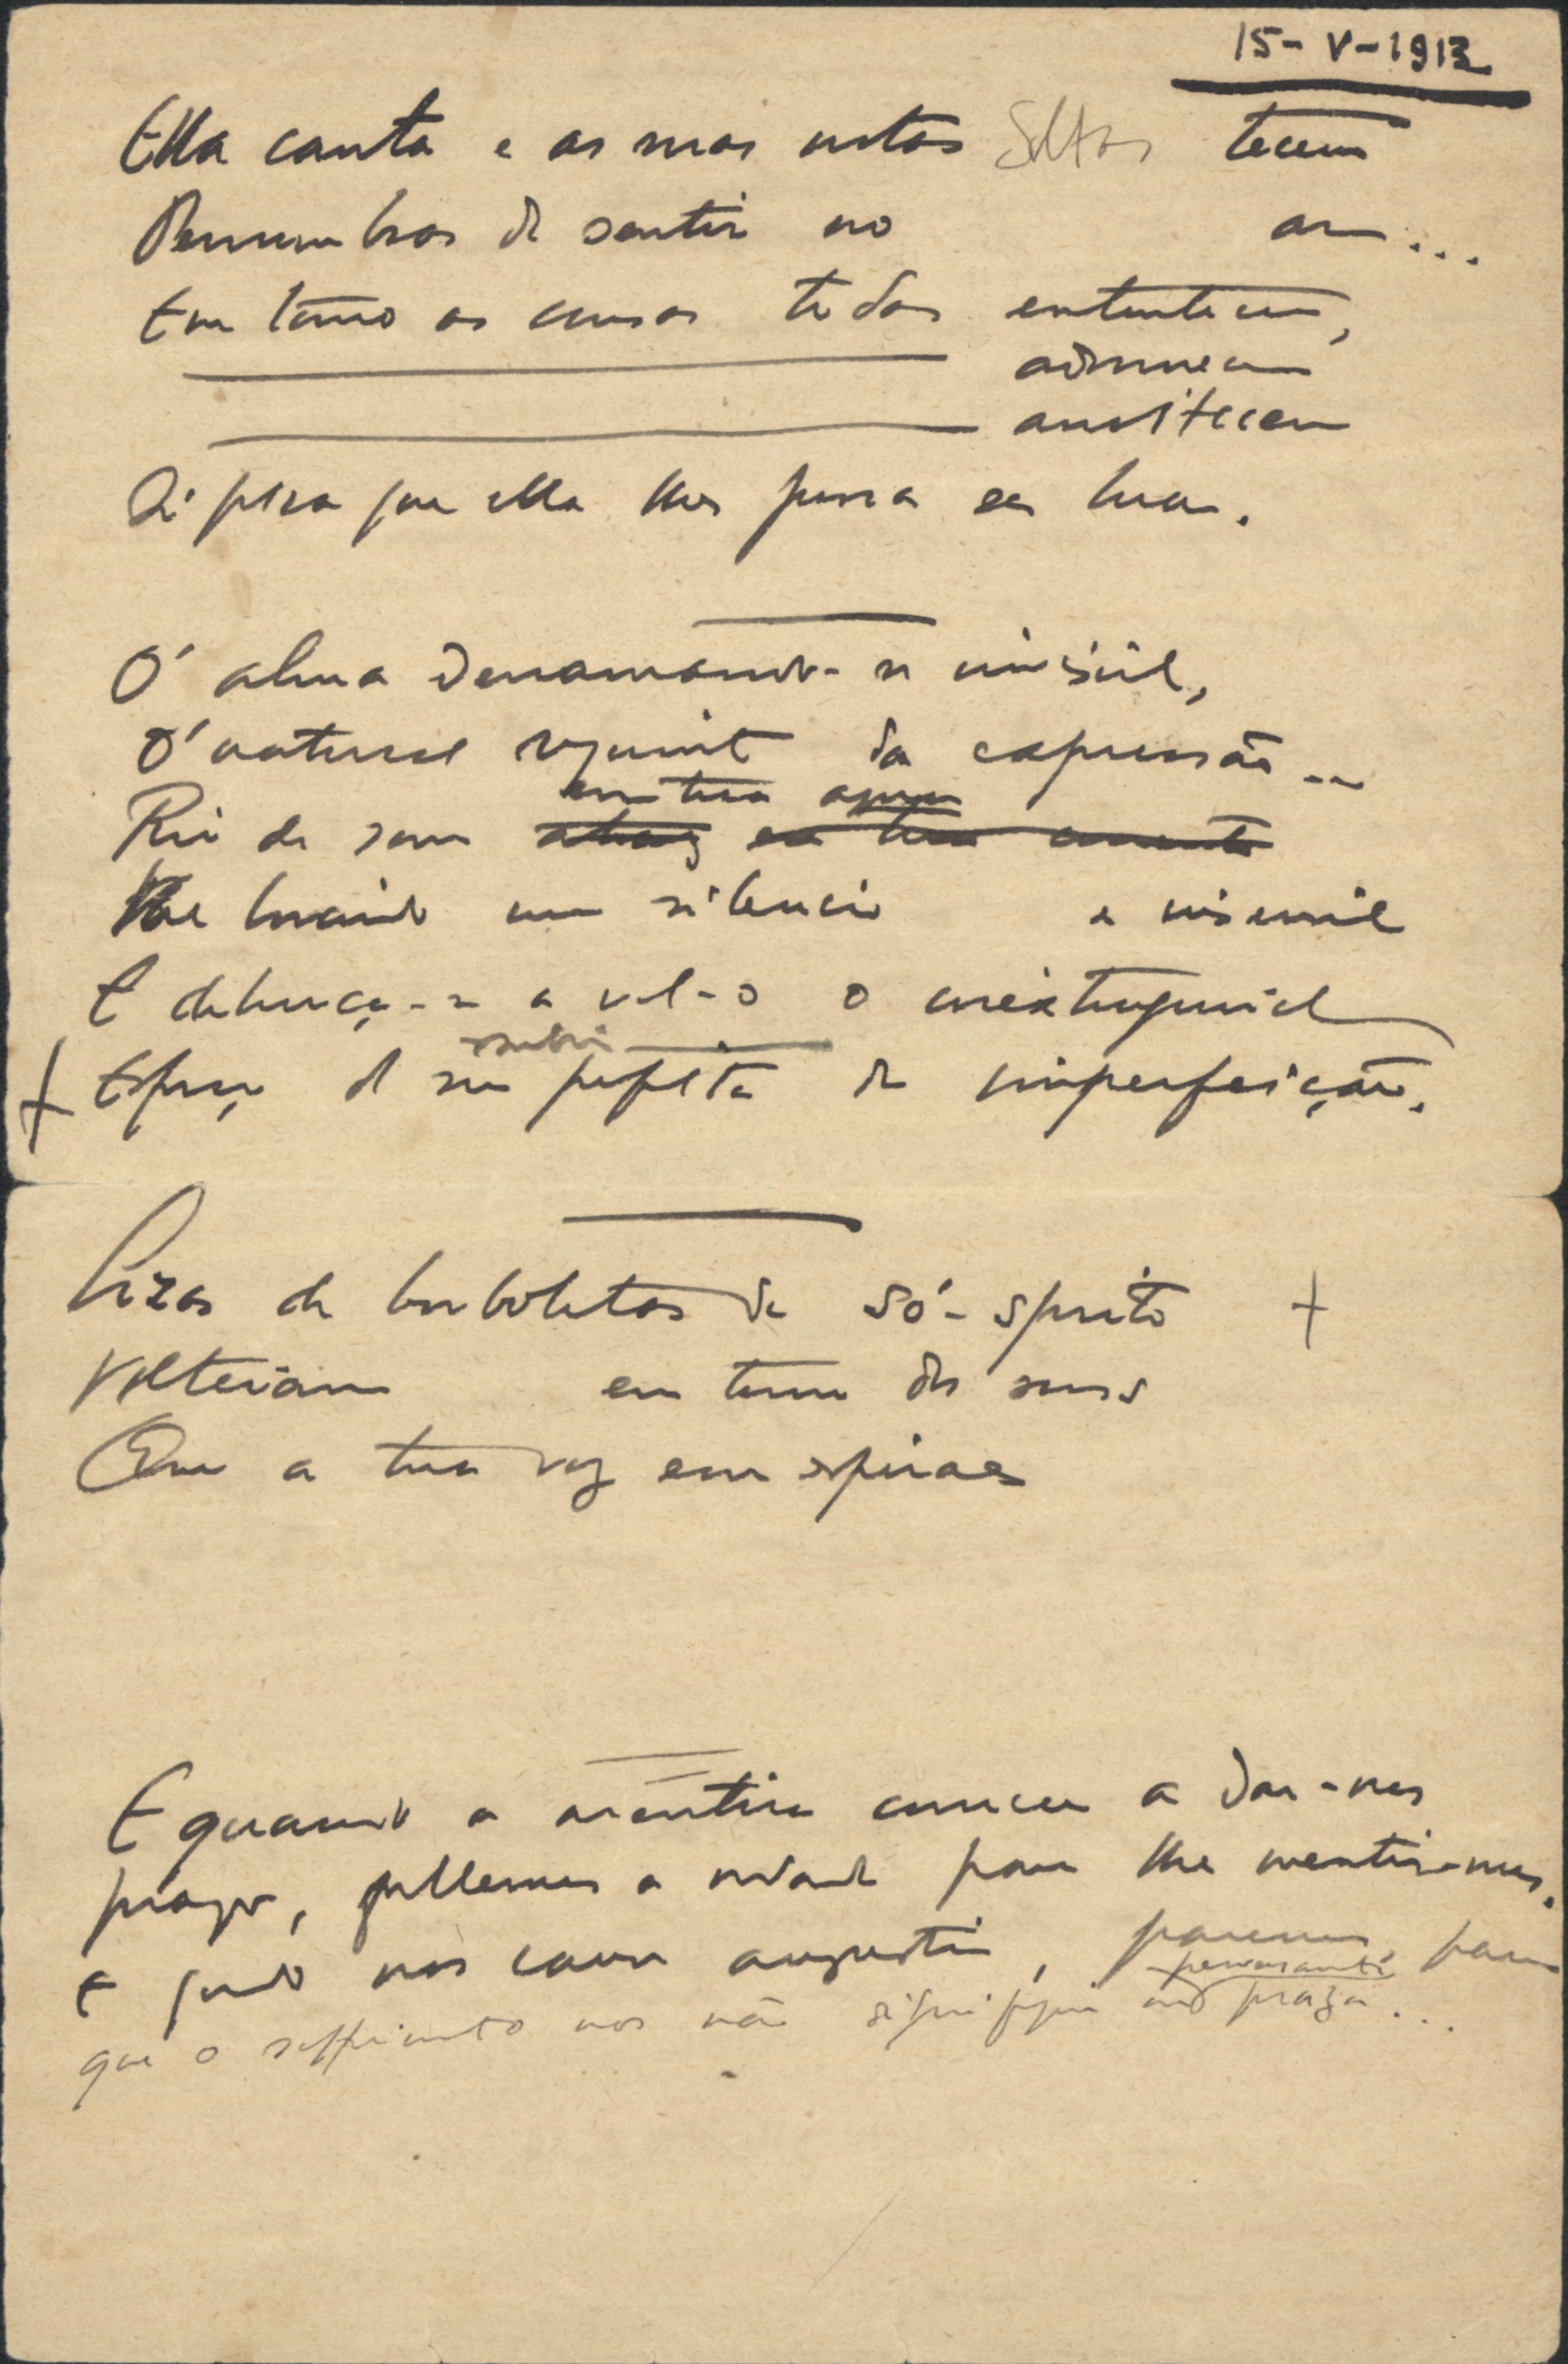 15-V-1913
Ella canta e as suas notas soltas tecem
Penumbras de sentir no ar...
Em torno as cousas todas entontecem,
adormecem
anoitecem
Ó alma derramando-se invisivel,
Ó natural requinte da expressão...
em tua
Rio de som
Vae boiando um silencio e
E debruça-se a vel-o o inextinguivel
subito
Esforço de ser perfeita de imperfeição.
Azas de borboletas de só-sprito
Volteiam em torno dos sons
Que a tua voz em espiraes
E quando a mentira comece a dar-nos
prazer, fallemos a verdade para lhe mentirmos.
E quando nos cause angustia, paremos, para
que o soffrimento nos não signifique nem prazer...